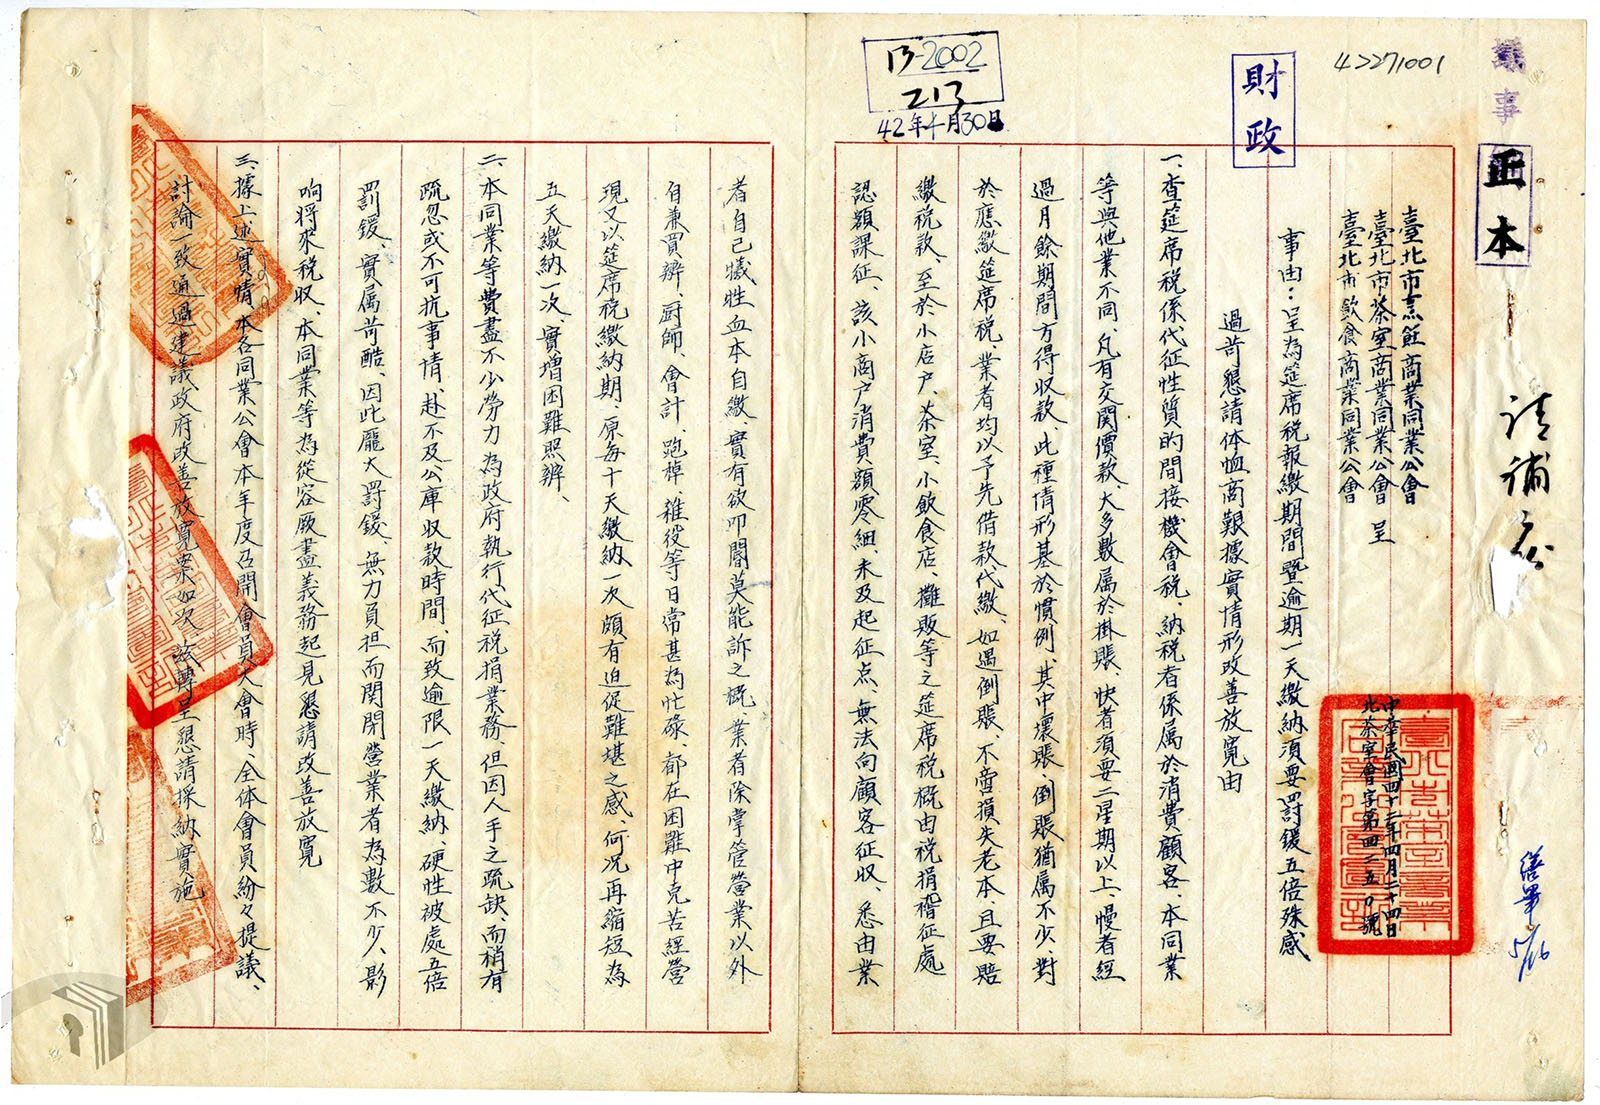 42271001
議事
正本
請補
財政
13-2002
213
42年4月30日
臺北市烹飪商業同業公會
臺北市茶室商業同業公會 呈
臺北市飲食商業同業公會
中華民國四十二年四月二十四日
北茶室會字第四二五0號
事由：呈為筵席稅報繳期間暨逾期一天繳納須要罰鍰五倍殊感
過苛懇請体恤商艱據實情形改善放寬由
一、查筵席稅係代征性質的間接機會稅、納稅者係属於消費顧客、本同業
等與他業不同、凡有交関價款、大多數属於掛賬、快者須要二星期以上、慢者經
過月餘期間方得收款、此種情形基於慣例、其中壞賬、倒賬猶属不少、對
於應繳筵席稅、業者均以予先借款代繳、如遇倒賬、不啻損失老本、且要賠
繳稅款、至於小店户、茶室、小飲食店、攤販等之筵席稅概由稅捐稽征處
認額課征、該小商户消費額零細、未及起征点、無法向顧客征收、悉由業
者自己犧牲血本自繳、實有欲叩閽莫能訴之概、業者除掌管營業以外
自兼買辦、厨師、會計、跑棹、雜役等日常甚為忙碌、都在困難中克苦經營
現又以筵席稅繳納期、原每十天繳納一次頗有迫促難堪之感、何况再縮短為
五天繳納一次、實增困難照辦、
二、本同業等費盡不少勞力為政府執行代征稅捐業務、但因人手之疏缺、而稍有
疏忽或不可抗事情、赴不及公庫收款時間、而致逾限一天繳納、硬性被處五倍
罰鍰、實属苛酷、因此龐大罰鍰、無力負担而関閉營業者為數不少、影
响將來稅收、本同業等為從容厥盡義務起見懇請改善放寬
三、據上述實情、本各同業公會本年度召開會員大會時、全体會員紛々提議、
討論一致通過建議政府改善放寬案如次、茲轉呈懇請採納實施
繕畢 5/16